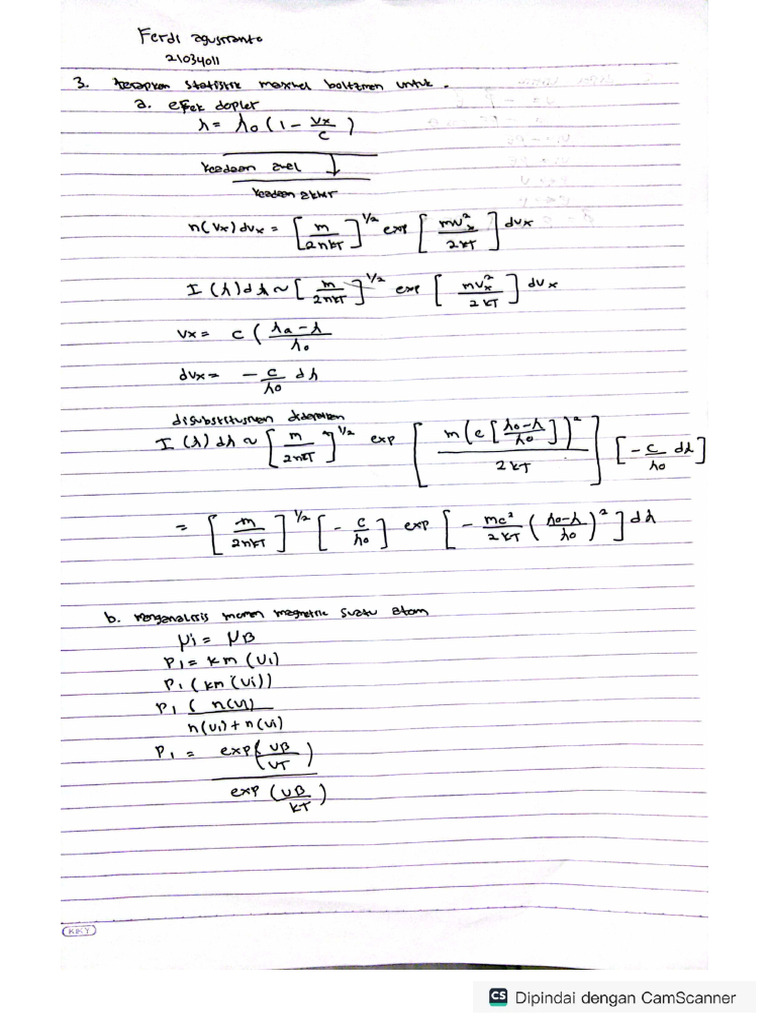 Ferdi Agustianto
21034011
3. terapkan statistik maxwel boltzman untuk.
a. efek dopler
λ = λ0 (1 - Vx/c)
Keadaan awal ↓
Keadaan akhir
n(Vx) dVx = [m/2πkT]^1/2 exp [mv_x^2/2kT] dVx
I (λ) dλ ~ [m/2πkT]^1/2 exp [mv_x^2/2kT] dVx
Vx = c (λ0 - λ/λ0
dVx = - c/λ0 dλ
disubstitusikan
I (λ) dλ ~ [m/2πkT]^1/2 exp [m(c[λ0-λ/λ0])^2/2kT] [- c/λ0 dλ]
= [m/2πkT]^1/2 [- c/λ0] exp [- mc^2/2kT (λ0-λ/λ0)^2] dλ
b. menganalisis momen magnetik suatu atom
μi = μB
P1 = km (U1)
P1 (km (Ui))
P1 ( n(U1)/n(U1) + n(U1)
P1 = exp(UB/UT)/exp (UB/kT)
KKY
CS Dipindai dengan CamScanner